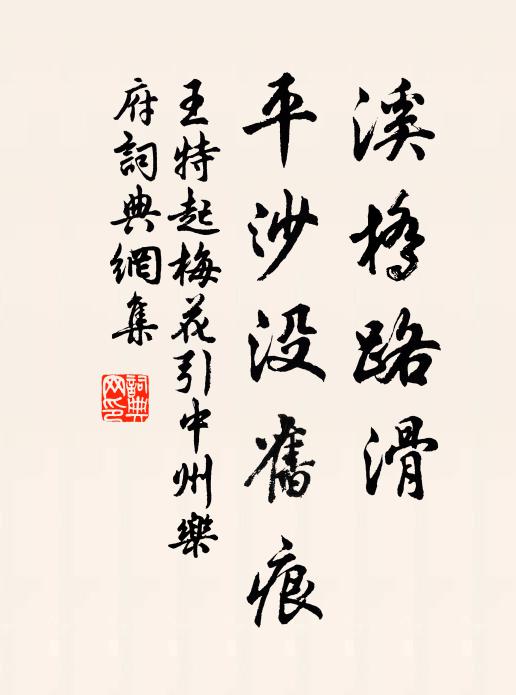 溪橋路滑
平沙没舊痕
王特起梅花引中州樂
府詞典網集
詞典
网印